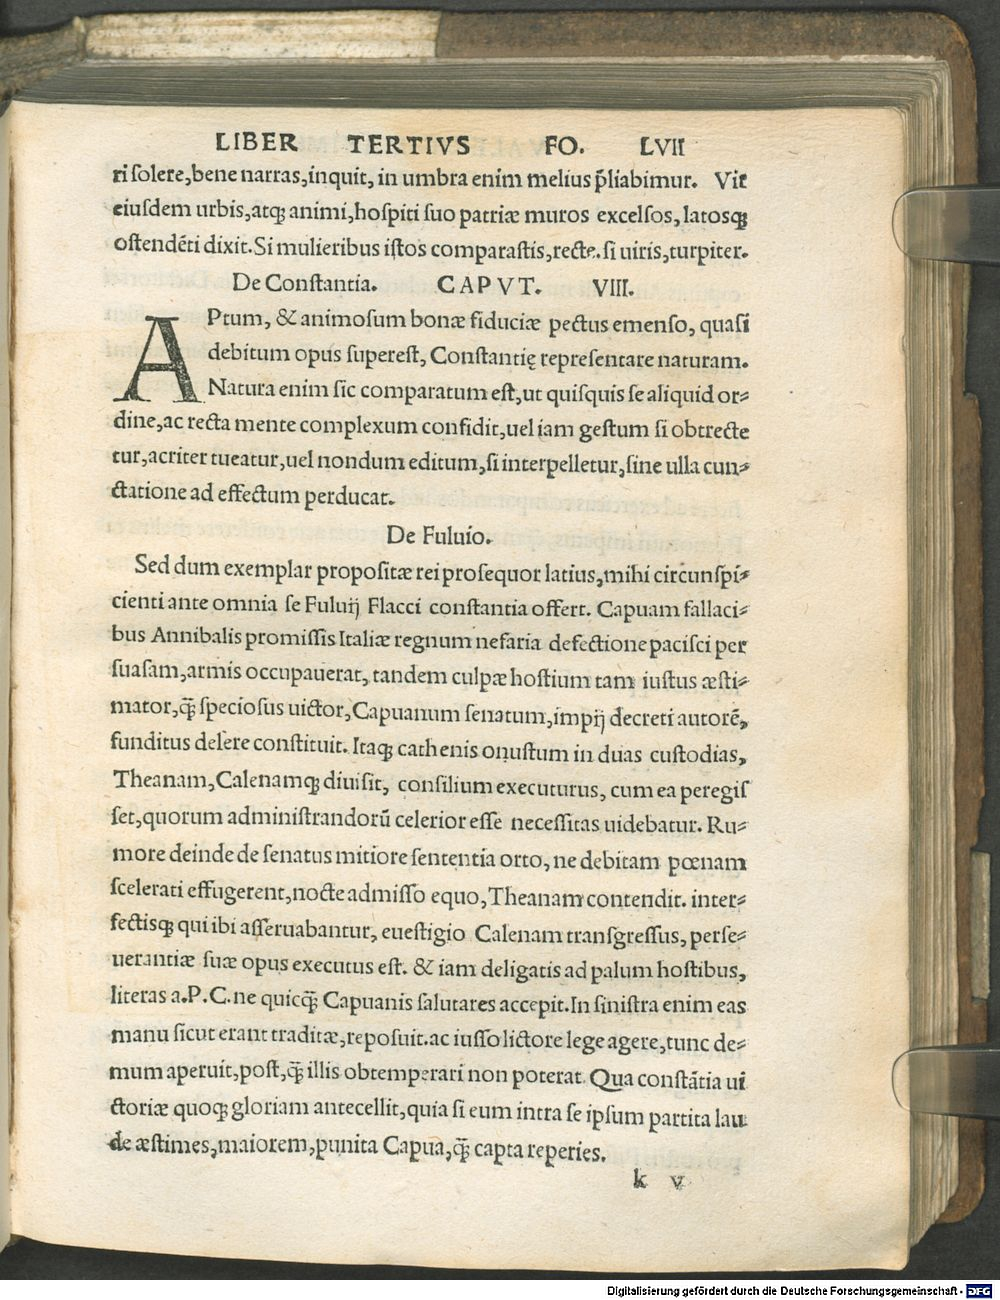 LIBER TERTIVS FO. LVII
ri solere,bene narras,inquit, in umbra enim melius p̃liabimur. Vir
eiusdem urbis,atq; animi,hospiti suo patriæ muros excelsos,latosq;
ostendẽti dixit.Si mulieribus istos comparastis,recte.si uiris,turpiter.
De Constantia. CAPVT. VIII.
APtum, & animosum bonæ fiduciæ pectus emenso, quasi
debitum opus superest, Constantię representare naturam.
Natura enim sic comparatum est,ut quisquis se aliquid or⸗
dine,ac recta mente complexum confidit,uel iam gestum si obtrecte
tur,acriter tueatur,uel nondum editum,si interpelletur,sine ulla cun⸗
ctatione ad effectum perducat.
De Fuluio.
Sed dum exemplar propositæ rei prosequor latius,mihi circunspi⸗
cienti ante omnia se Fuluij Flacci constantia offert. Capuam fallaci⸗
bus Annibalis promissis Italiæ regnum nefaria defectione pacisci per
suasam,armis occupauerat, tandem culpæ hostium tam iustus æsti⸗
mator,q̃ speciosus uictor,Capuanum senatum,impij decreti autorẽ,
funditus delere constituit. Itaq; cathenis onustum in duas custodias,
Theanam,Calenamq; diuisit, consilium executurus, cum ea peregis
set,quorum administrandorũ celerior esse necessitas uidebatur. Ru⸗
more deinde de senatus mitiore sententia orto, ne debitam pœnam
scelerati effugerent,nocte admisso equo,Theanam contendit. inter⸗
fectisq; qui ibi asseruabantur, euestigio Calenam transgressus, perse⸗
uerantiæ suæ opus executus est. & iam deligatis ad palum hostibus,
literas a.P.C.ne quicq̃ Capuanis salutares accepit.In sinistra enim eas
manu sicut erant traditæ,reposuit.ac iusso lictore lege agere,tunc de⸗
mum aperuit,post,q̃ illis obtemperari non poterat. Qua constãtia ui
ctoriæ quoq; gloriam antecellit,quia si eum intra se ipsum partita lau
de æstimes,maiorem,punita Capua,q̃ capta reperies.
k v
Digitalisierung gefördert durch die Deutsche Forschungsgemeinschaft - DFG